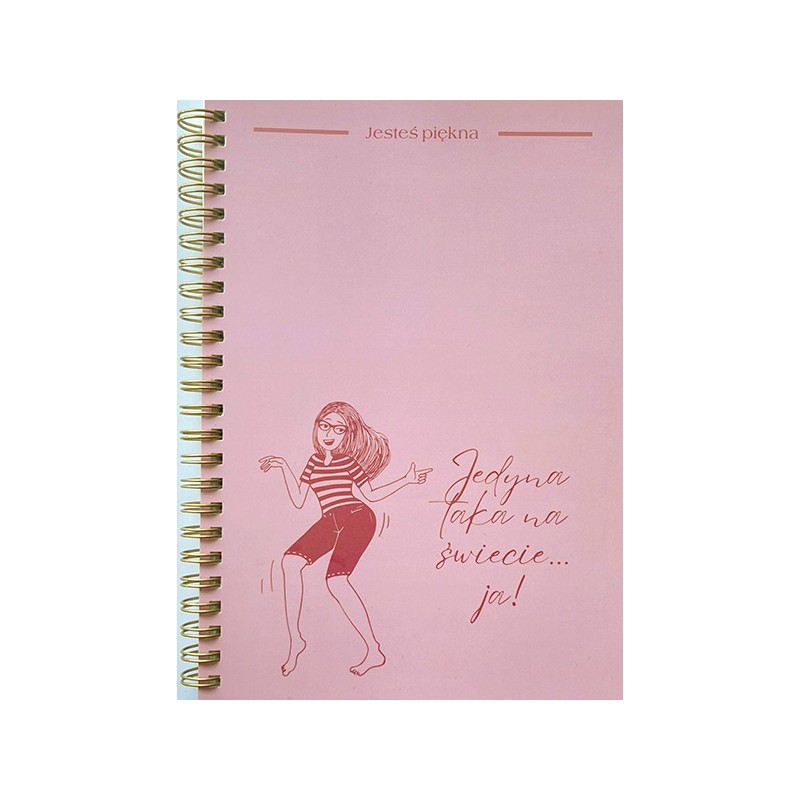 Jesteś piękna
Jedyna
taka na
świecie...
ja!